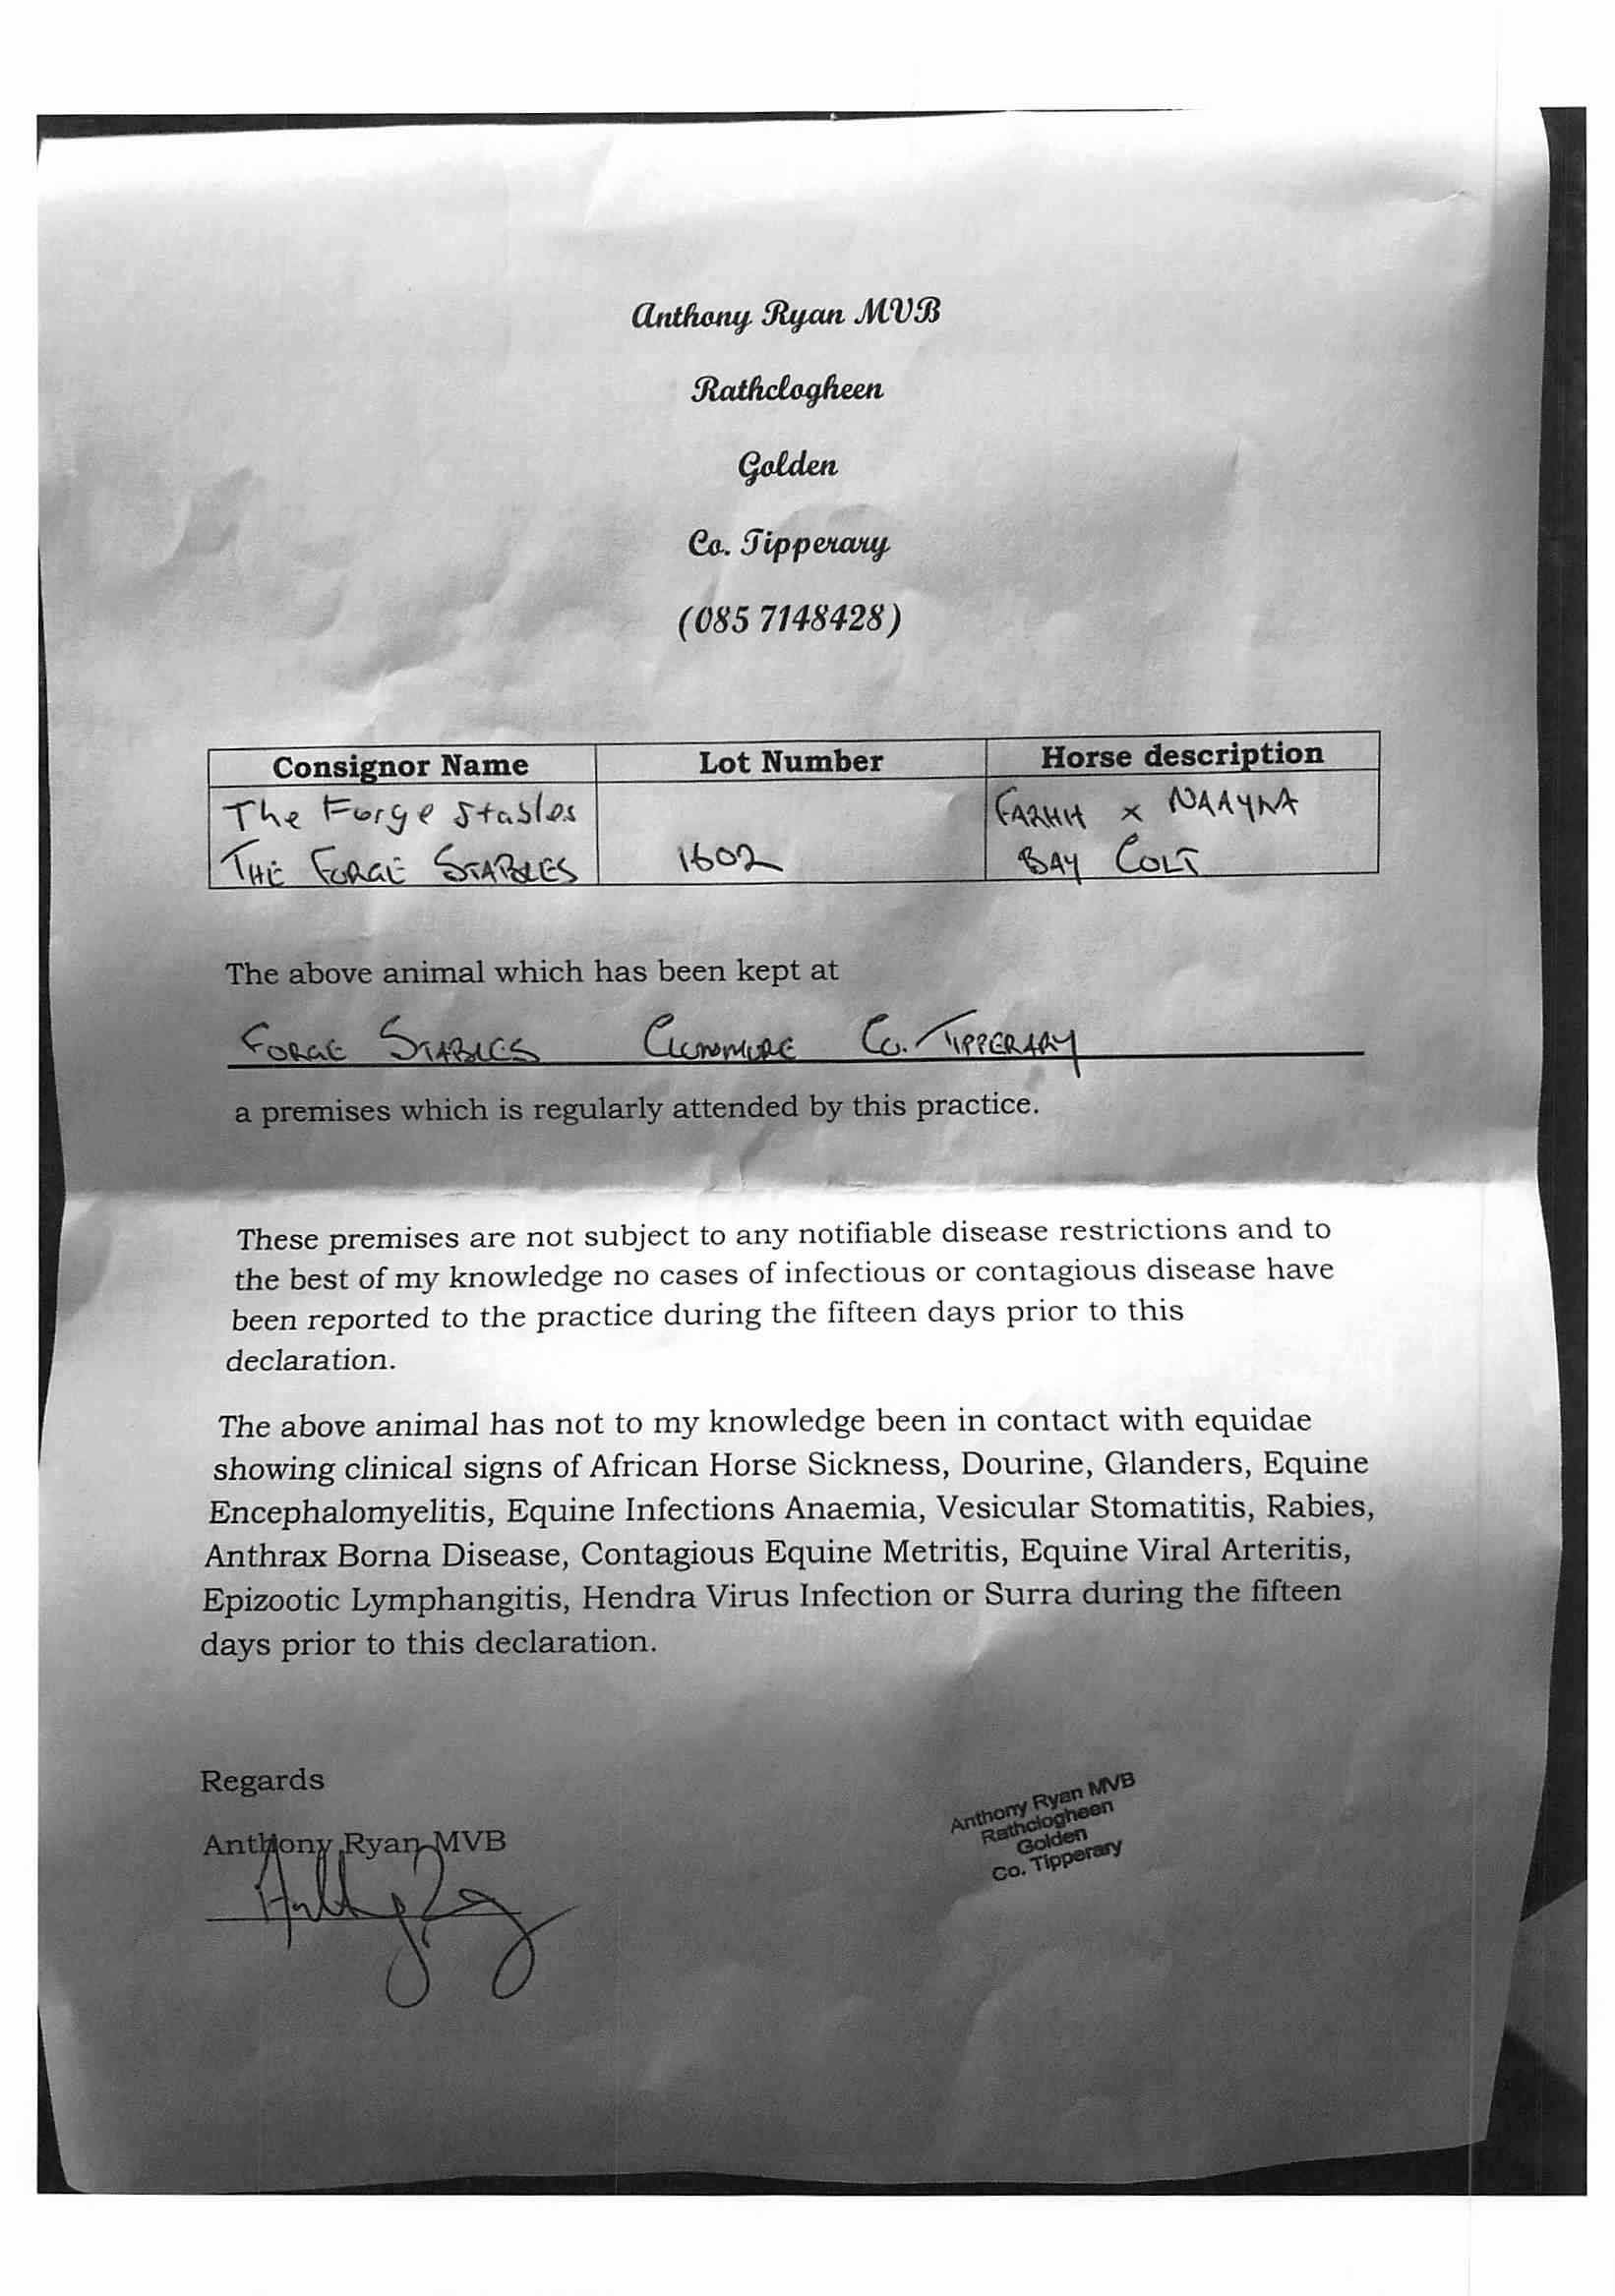 Anthony Ryan MVB
Rathclogheen
Golden
Co. Tipperary
(085 7148428)
Consignor Name Lot Number Horse description
The Forge Stables FARHH x NAAYLA
THE FORGE STABLES 1602 BAY COLT
The above animal which has been kept at
FORGE STABLES CLONMORE Co. TIPPERARY
a premises which is regularly attended by this practice.
These premises are not subject to any notifiable disease restrictions and to
the best of my knowledge no cases of infectious or contagious disease have
been reported to the practice during the fifteen days prior to this
declaration.
The above animal has not to my knowledge been in contact with equidae
showing clinical signs of African Horse Sickness, Dourine, Glanders, Equine
Encephalomyelitis, Equine Infections Anaemia, Vesicular Stomatitis, Rabies,
Anthrax Borna Disease, Contagious Equine Metritis, Equine Viral Arteritis,
Epizootic Lymphangitis, Hendra Virus Infection or Surra during the fifteen
days prior to this declaration.
Regards
Anthony Ryan MVB
Anthony Ryan MVB
Rathclogheen
Golden
Co. Tipperary